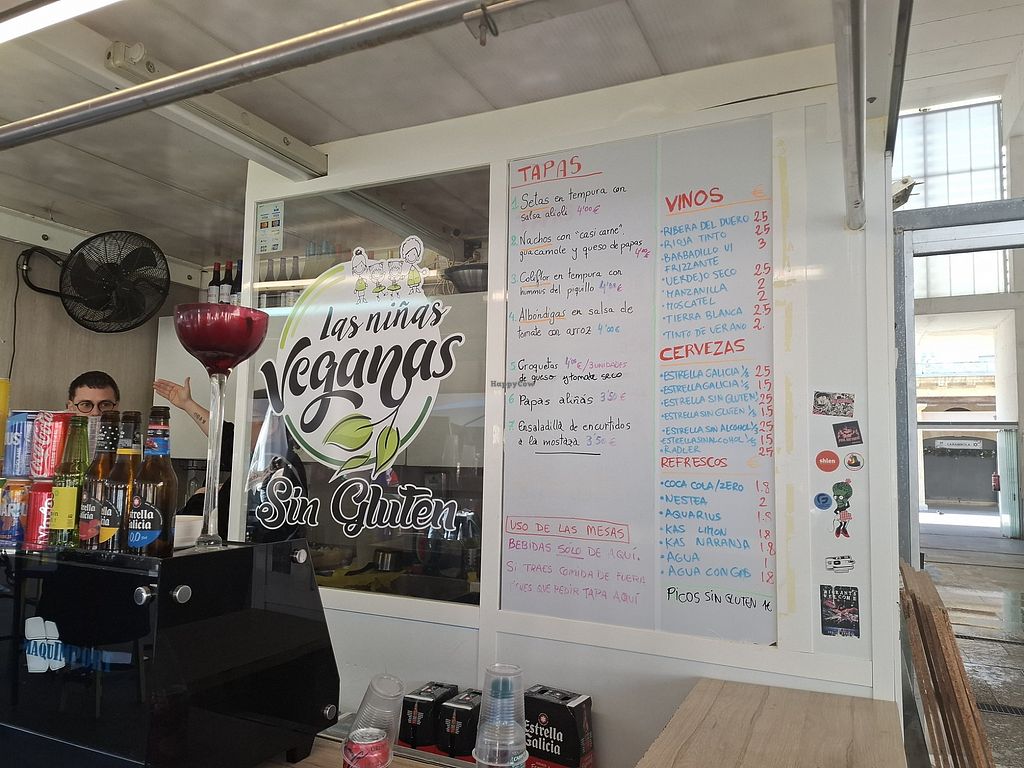 Las niñas
Veganas
Sin Gluten
TAPAS
1. Setas en tempura con
salsa alioli 4'00€
2. Nachos con "casi carne"
guacamole y queso de papas 4'00€
3. Coliflor en tempura con
hummus del piquillo 4'00€
4. Albóndigas en salsa de
tomate con arroz 4'00€
5. Croquetas 4'00€/3 UNIDADES
de queso y tomate seco
6 Papas aliñás 3'50€
7. Ensaladilla de encurtidos
a la mostaza 3'50€
USO DE LAS MESAS
BEBIDAS SOLO DE AQUÍ.
SI TRAES COMIDA DE FUERA
TIENES QUE PEDIR TAPA AQUÍ
VINOS €
•RIBERA DEL DUERO 2.5
•RIOJA TINTO 2.5
•BARBADILLO VI 3
FRIZZANTE
•VERDEJO SECO 2.5
•MANZANILLA 2
•MOSCATEL 2
•TIERRA BLANCA 2.5
•TINTO DE VERANO 2.
CERVEZAS
•ESTRELLA GALICIA 1/3 2.5
•ESTRELLA GALICIA 1/5 1.5
•ESTRELLA SIN GLUTEN 1/3 2.5
•ESTRELLA SIN GLUTEN 1/5 1.5
•ESTRELLA SIN ALCOHOL 1/3 2.5
•ESTRELLA SIN ALCOHOL 1/5 1.5
•RADLER 2.5
REFRESCOS €
•COCA COLA/ZERO 1.8
•NESTEA 2
•AQUARIUS 1.8
•KAS LIMON 1.8
•KAS NARANJA 1.8
•AGUA 1
•AGUA CON GAS 1.8
PICOS SIN GLUTEN 1€
HappyCow
shlen
Coca-Cola
Estrella
Galicia
0,0
Estrella
Galicia